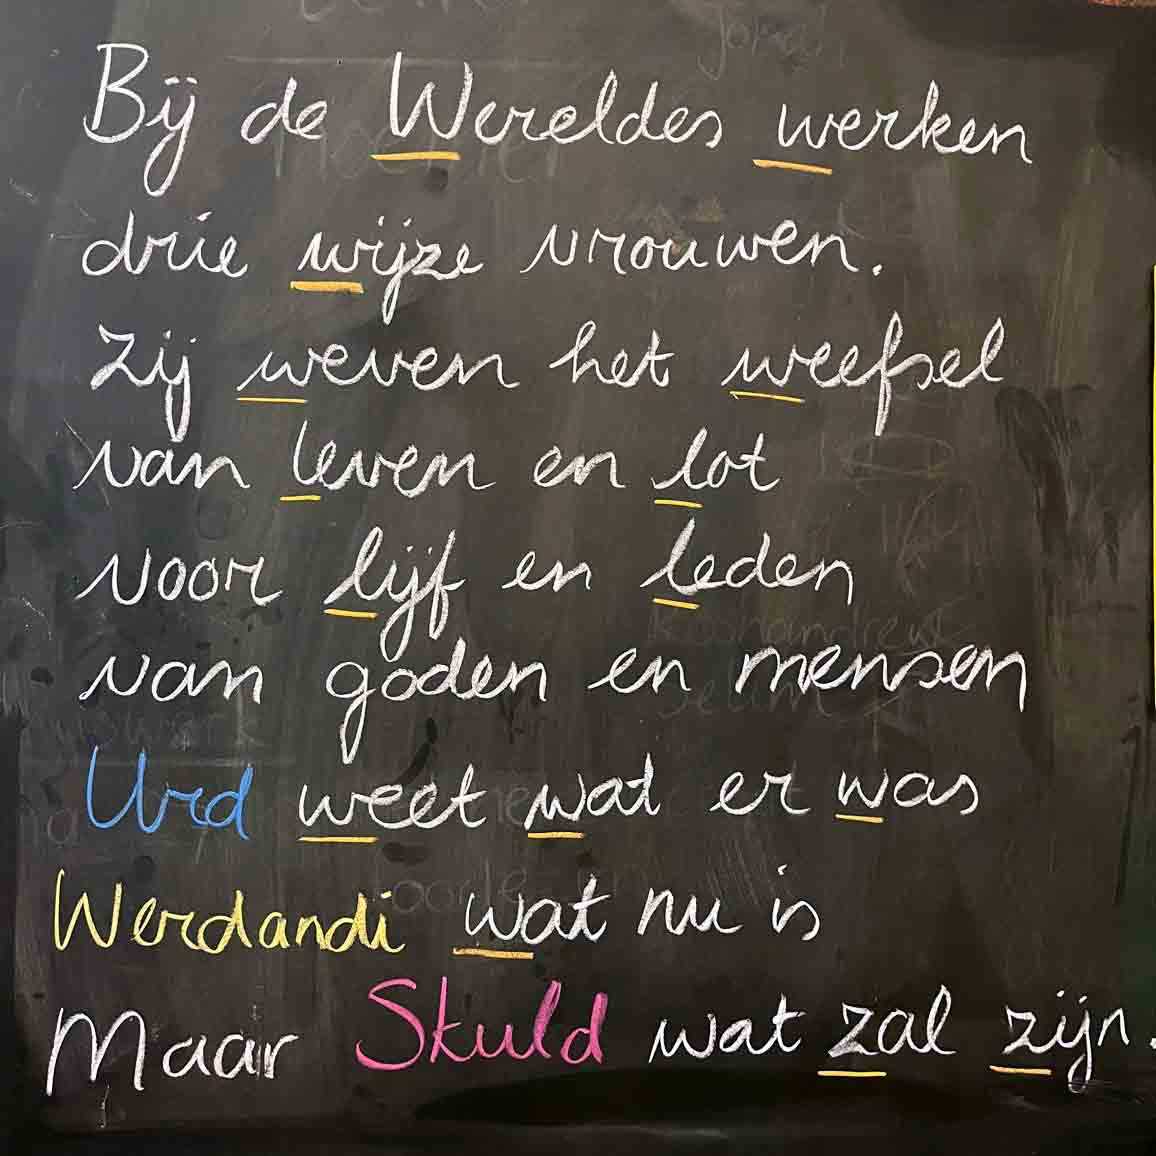 Bij de Wereldes werken
drie wijze vrouwen.
Zij weven het weefsel
van leven en lot
voor lijf en leden
van goden en mensen
Urd weet wat er was
Werdandi wat nu is
Maar Skuld wat zal zijn.